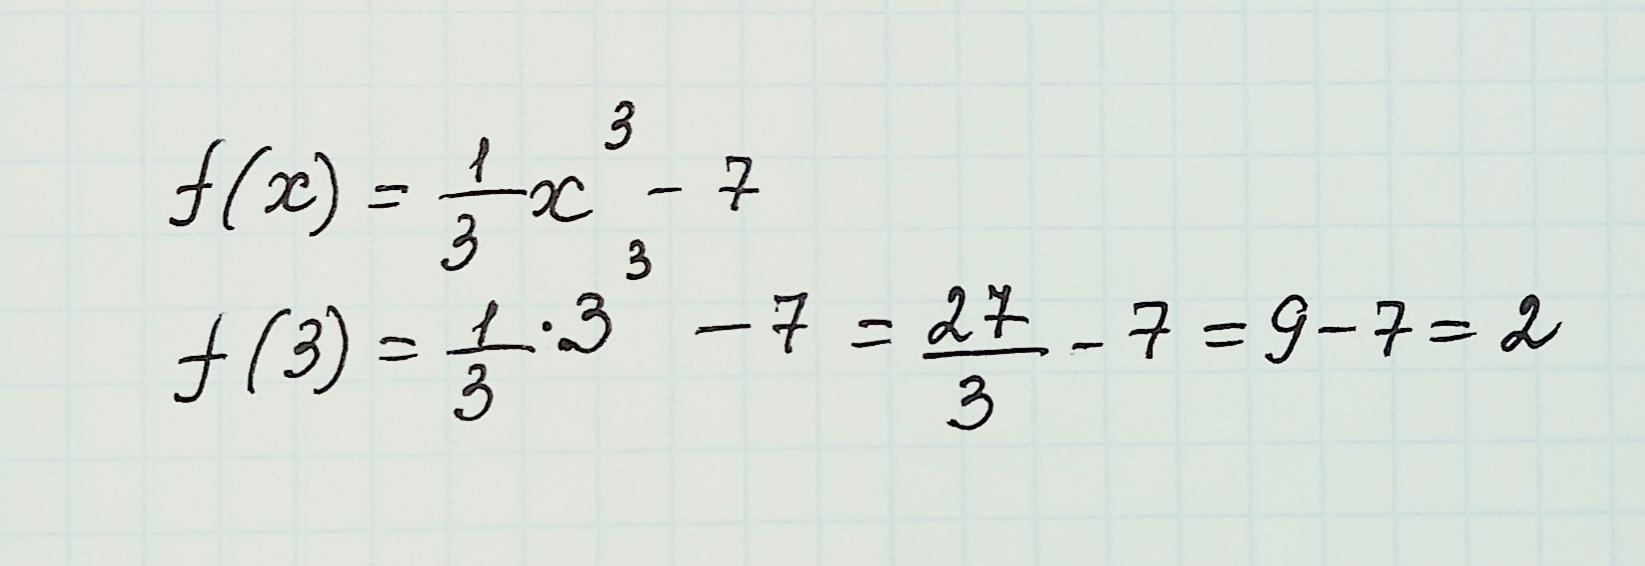 f(x) = 1/3 x³ - 7
f(3) = 1/3 · 3³ - 7 = 27/3 - 7 = 9 - 7 = 2